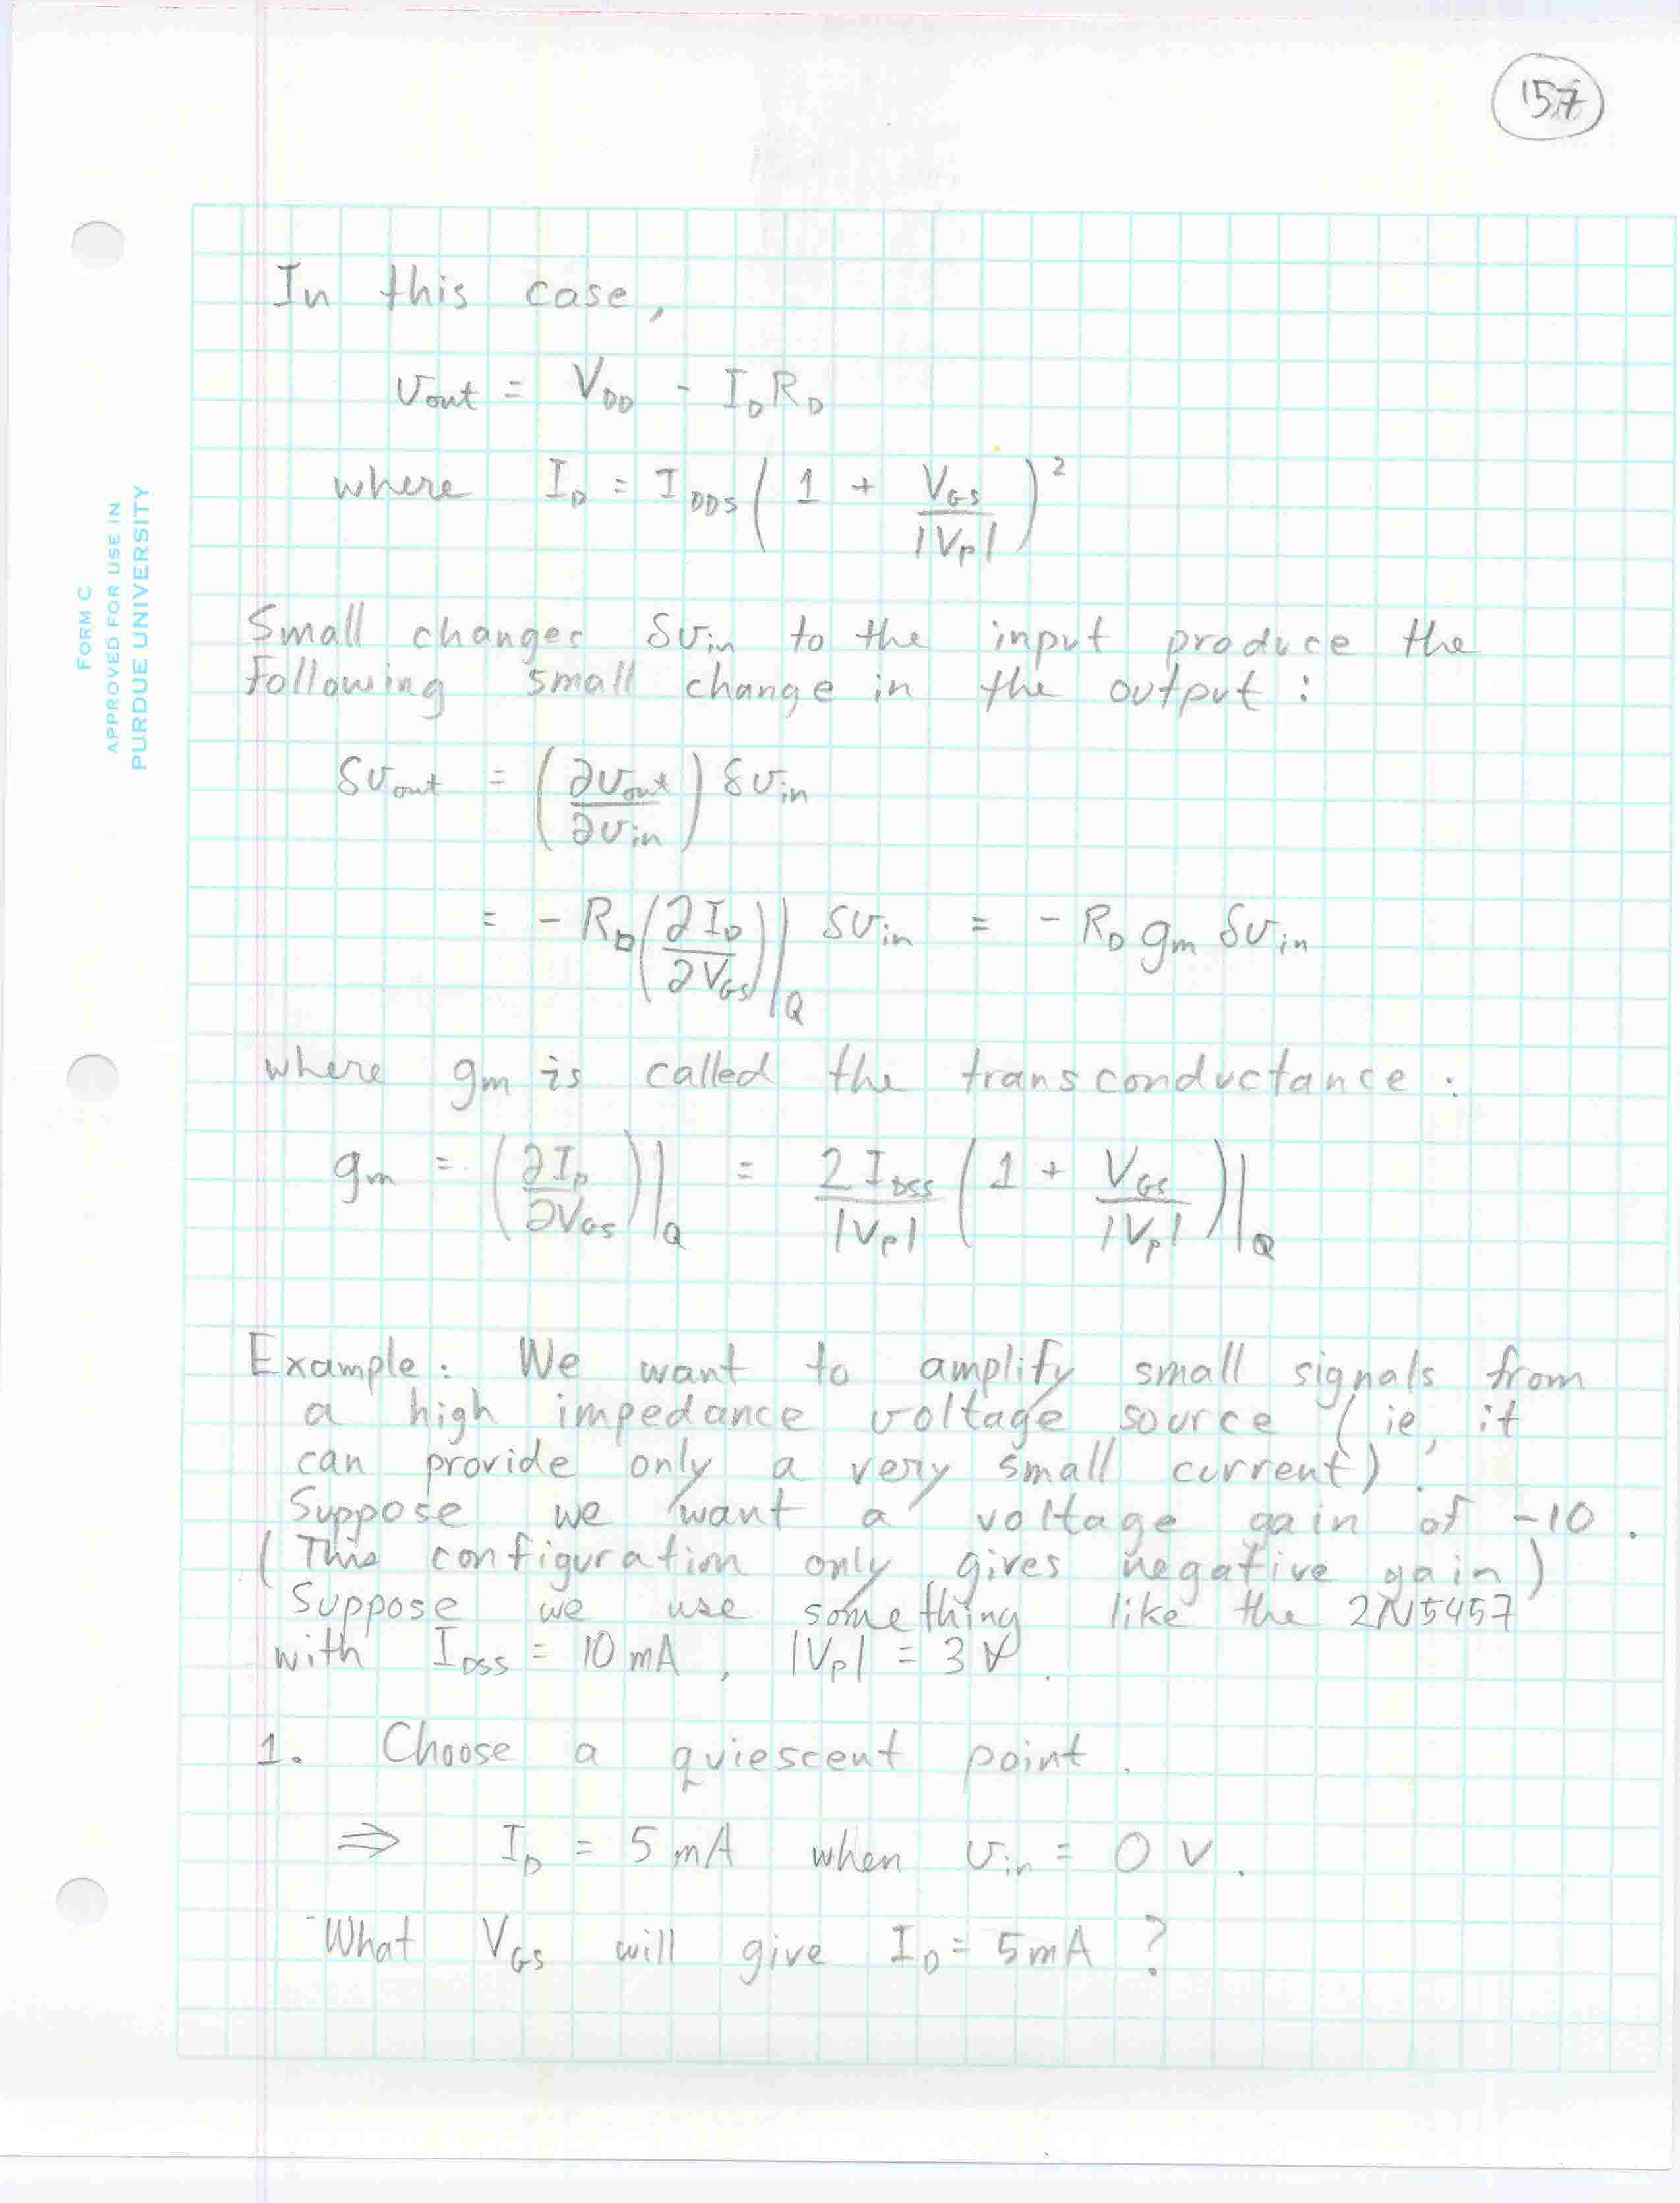 157
FORM C
APPROVED FOR USE IN
PURDUE UNIVERSITY
In this case,
v_out = V_DD - I_D R_D
where I_D = I_DDS ( 1 + V_GS / |V_P| )²
Small changes δv_in to the input produce the
following small change in the output :
δv_out = ( ∂v_out / ∂v_in ) δv_in
= - R_D ( ∂I_D / ∂V_GS ) |_Q δv_in = - R_D g_m δv_in
where g_m is called the transconductance :
g_m = ( ∂I_D / ∂V_GS ) |_Q = 2 I_DSS / |V_P| ( 1 + V_GS / |V_P| ) |_Q
Example : We want to amplify small signals from
a high impedance voltage source (ie, it
can provide only a very small current) .
Suppose we want a voltage gain of -10 .
( This configuration only gives negative gain )
Suppose we use something like the 2N5457
with I_DSS = 10 mA , |V_P| = 3 V .
1. Choose a quiescent point .
⇒ I_D = 5 mA when v_in = 0 V .
What V_GS will give I_D = 5 mA ?